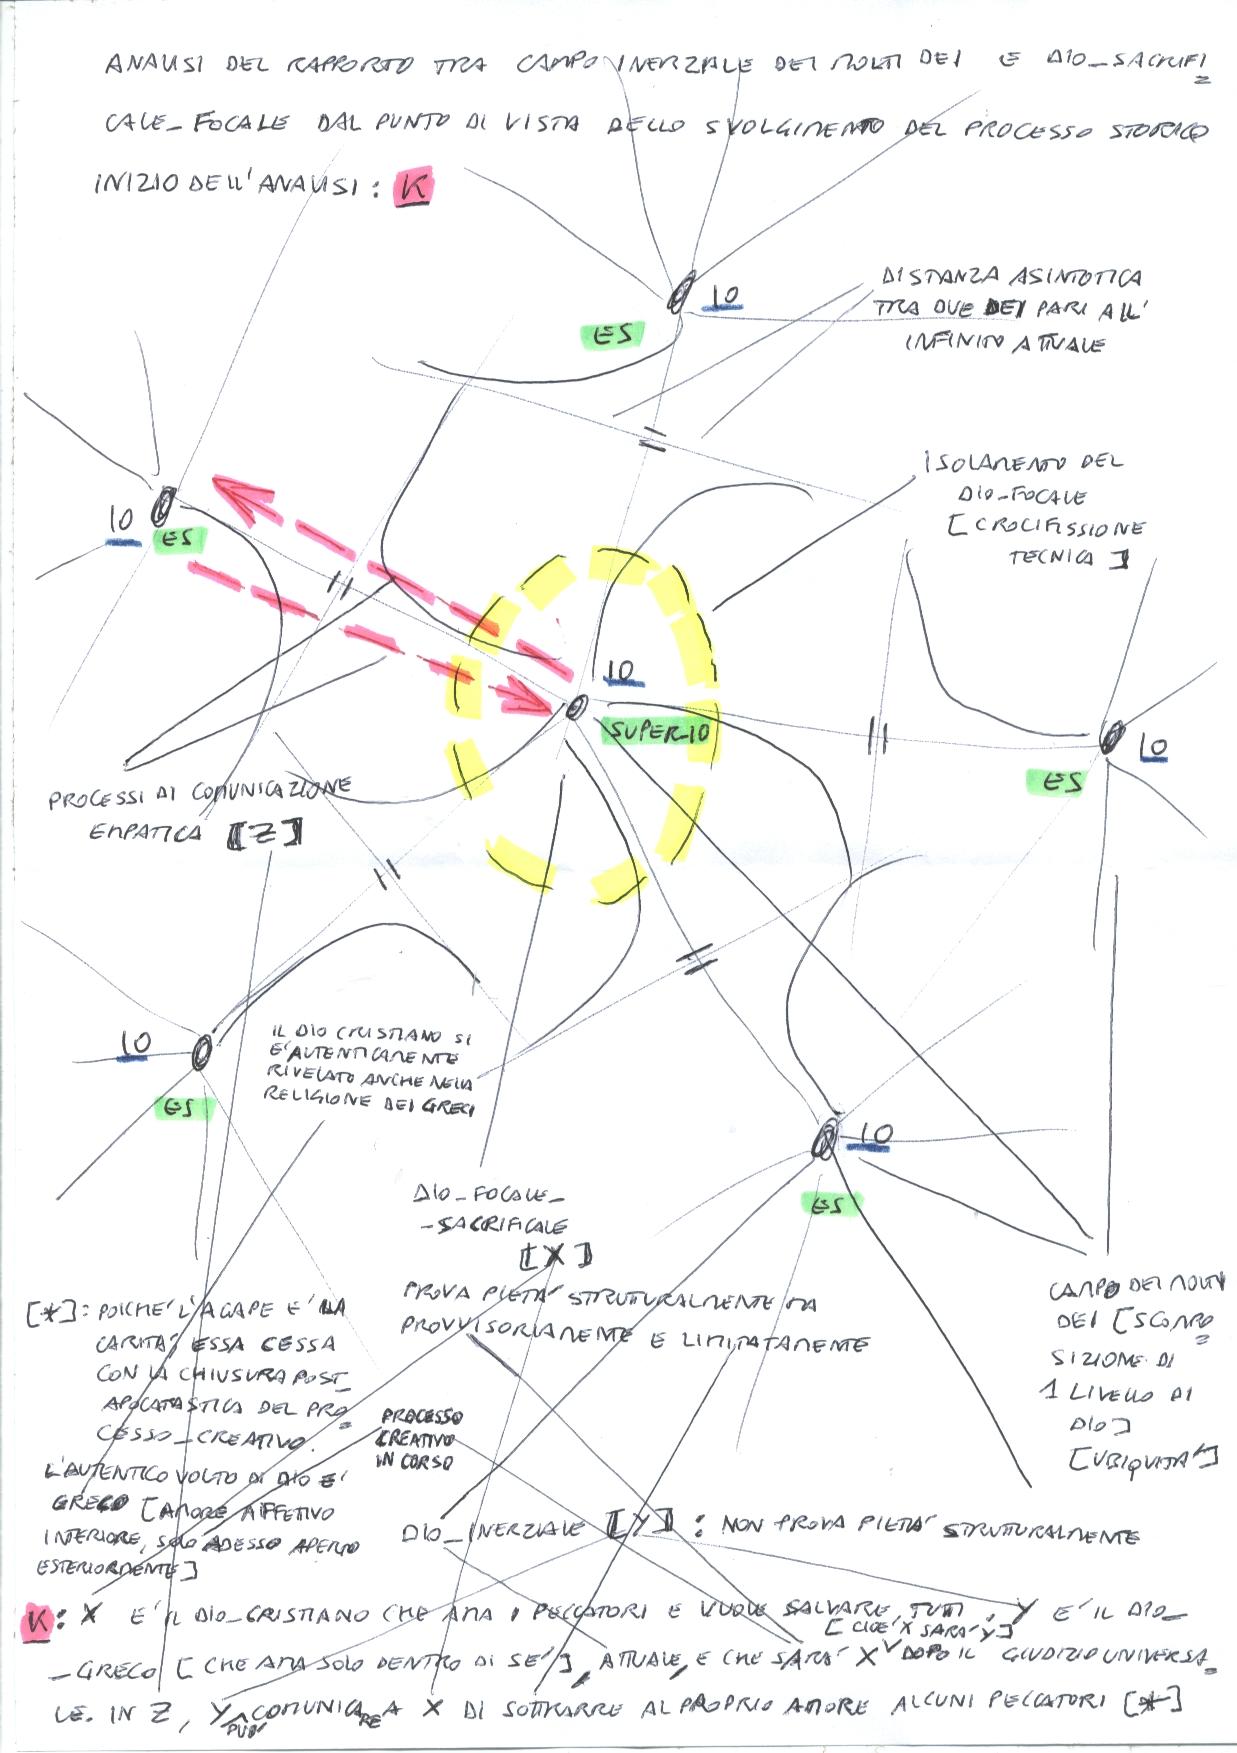 ANALISI DEL RAPPORTO TRA CAMPO INERZIALE DEI MOLTI DEI E DIO_SACRIFI=
CALE_FOCALE DAL PUNTO DI VISTA DELLO SVOLGIMENTO DEL PROCESSO STORICO
INIZIO DELL'ANALISI : K
DISTANZA ASINTOTICA
TRA DUE DEI PARI ALL'
INFINITO ATTUALE
IO
ES
ISOLAMENTO DEL
DIO_FOCALE
[CROCIFISSIONE
TECNICA]
IO
ES
IO
SUPERIO
IO
ES
PROCESSI DI COMUNICAZIONE
EMPATICA [Z]
IO
ES
IL DIO CRISTIANO SI
E' AUTENTICAMENTE
RIVELATO ANCHE NELLA
RELIGIONE DEI GRECI
IO
ES
DIO_FOCALE_
_SACRIFICALE
[X]
PROVA PIETA' STRUTTURALMENTE MA
PROVVISORIAMENTE E LIMITATAMENTE
CAMPO DEI MOLTI
DEI [SCOMPO=
SIZIONE DI
1 LIVELLO DI
DIO]
[UBIQUITA']
[*]: POICHE' L'AGAPE E' LA
CARITA' ESSA CESSA
CON LA CHIUSURA POST_
APOCATASTICA DEL PRO=
CESSO_CREATIVO.
PROCESSO
CREATIVO
IN CORSO
L'AUTENTICO VOLTO DI DIO E'
GRECO [AMORE AFFETIVO
INTERIORE, SOLO ADESSO APERTO
ESTERIORMENTE]
DIO_INERZIALE [Y] : NON PROVA PIETA' STRUTTURALMENTE
K: X E' IL DIO_CRISTIANO CHE AMA I PECCATORI E VUOLE SALVARE TUTTI, Y E' IL DIO_
[CIOE' X SARA' Y]
_GRECO [CHE AMA SOLO DENTRO DI SE'], ATTUALE, E CHE SARA' X DOPO IL GIUDIZIO UNIVERSA=
LE. IN Z, Y PUO' COMUNICARE A X DI SOTTRARRE AL PROPRIO AMORE ALCUNI PECCATORI [*]